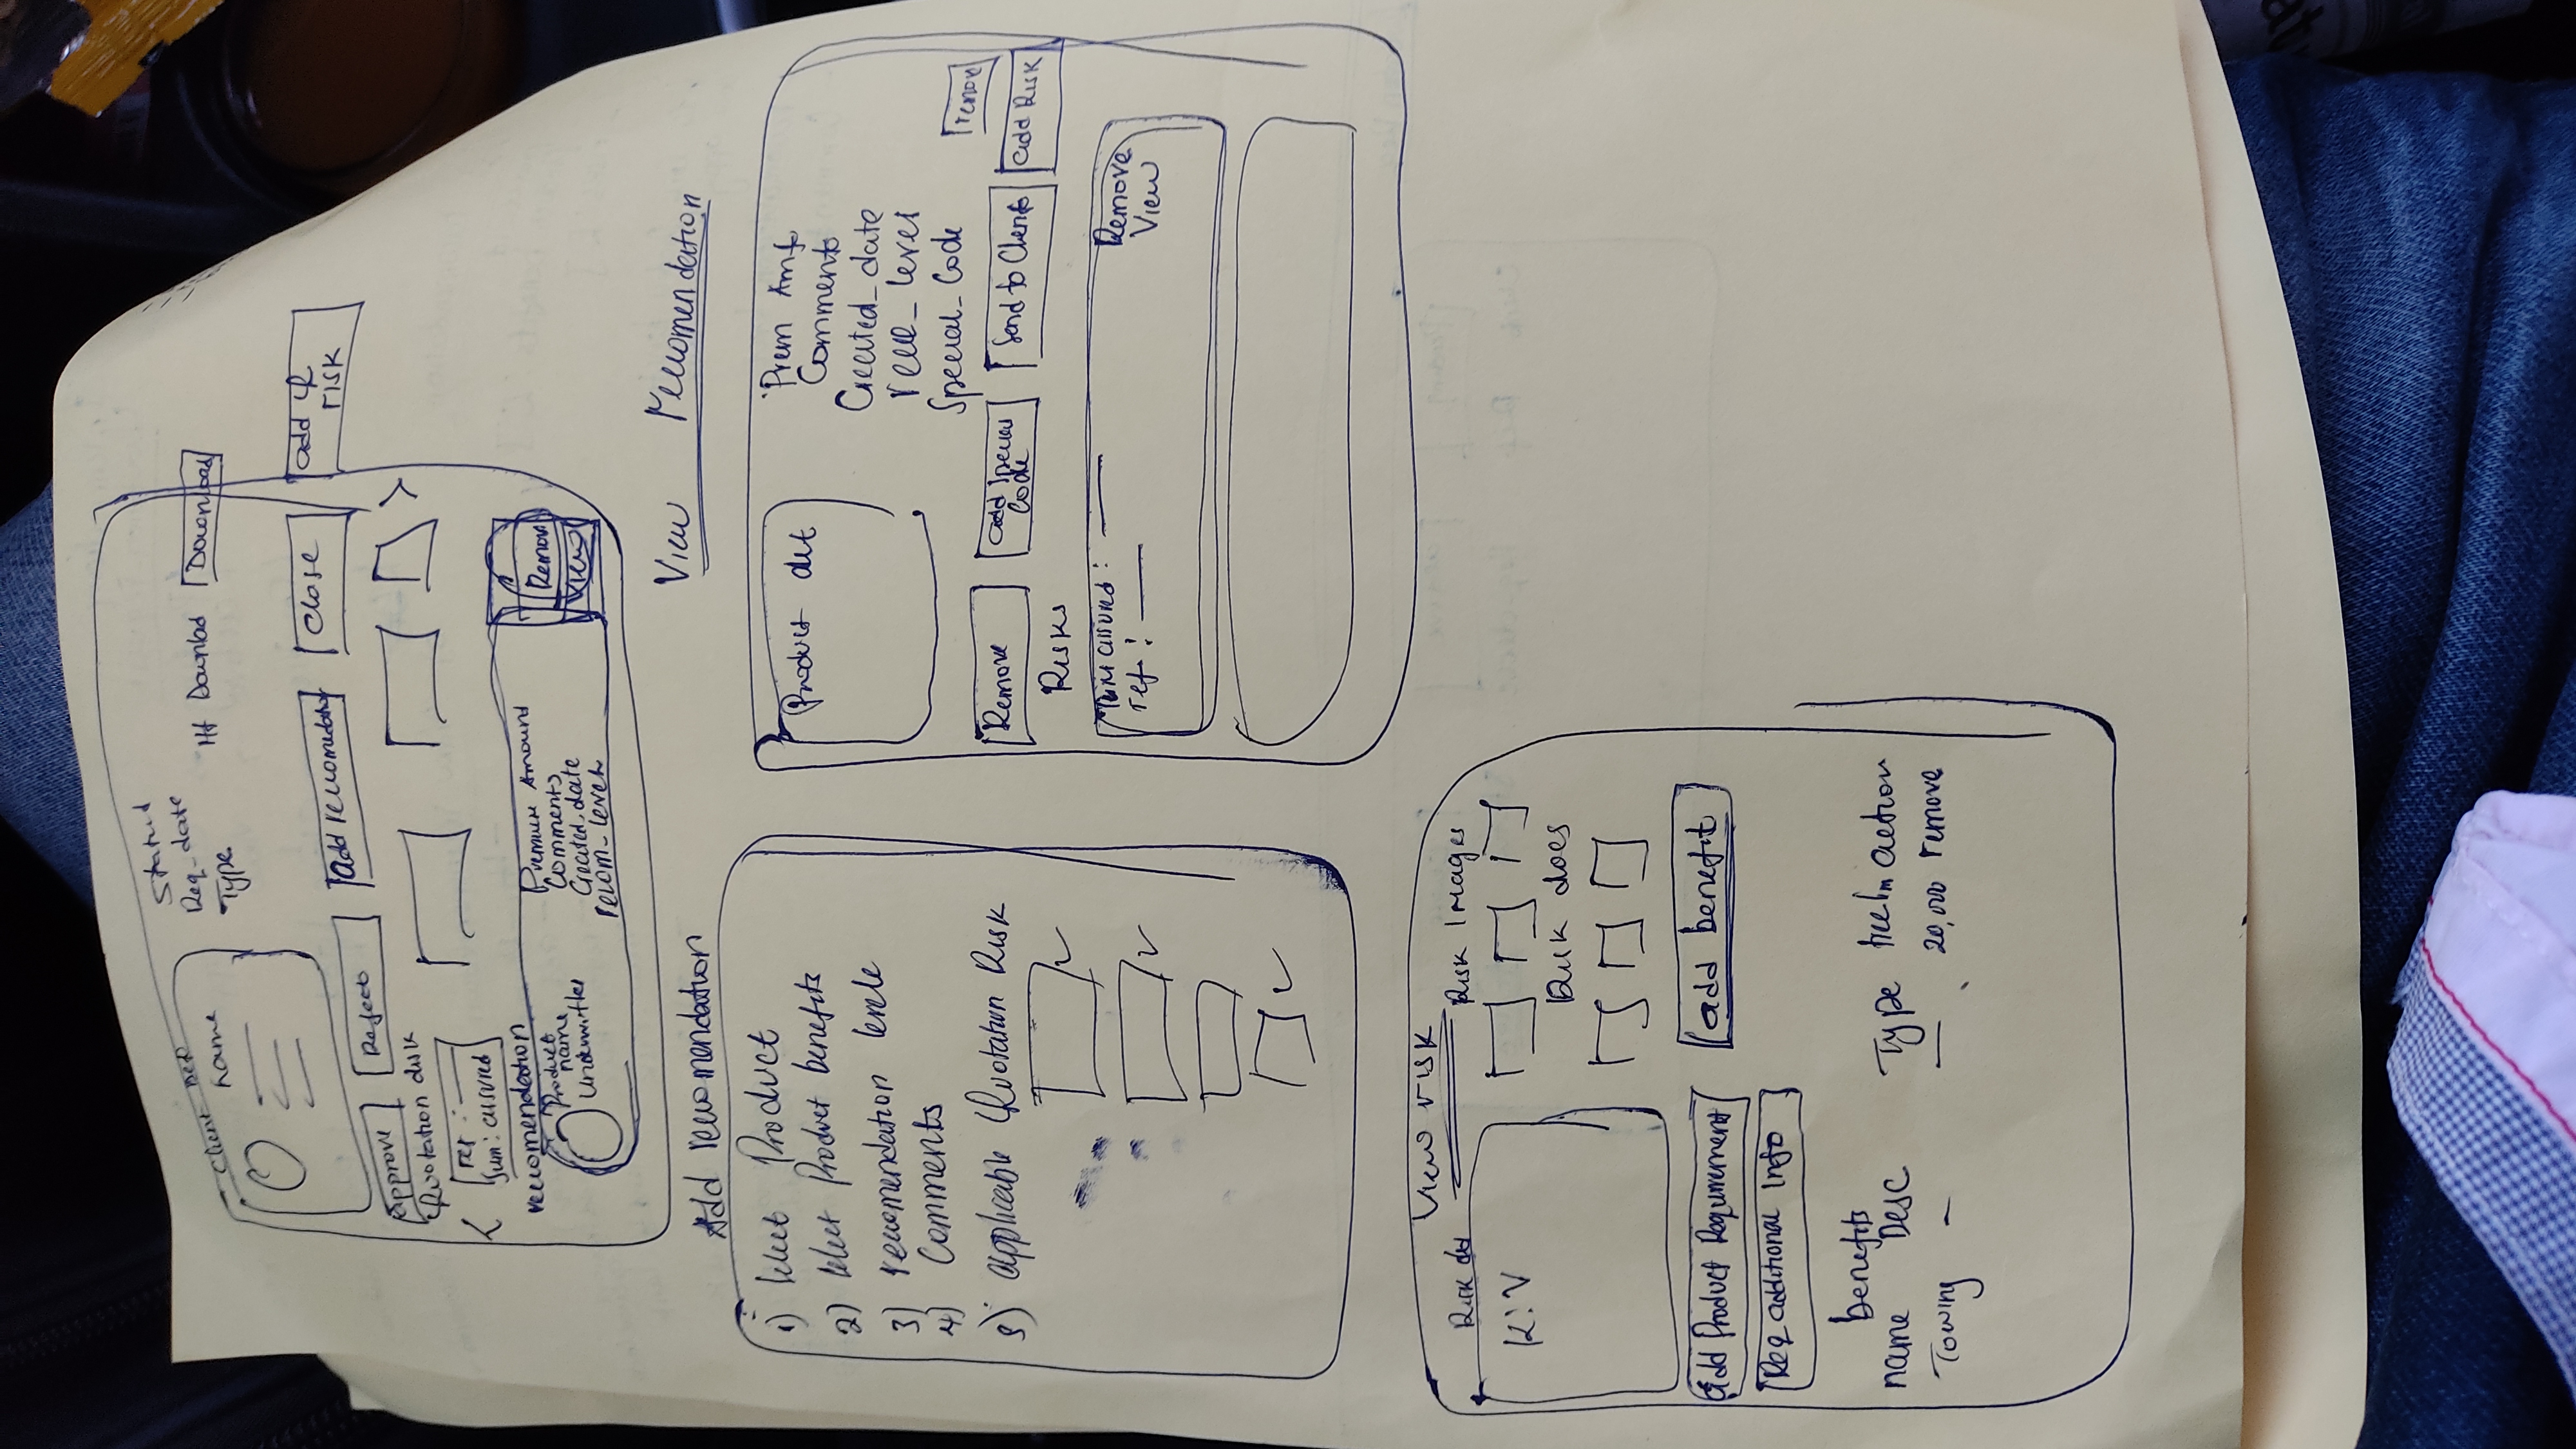 Client
name
Status
Req_date
Type
Download
Download
approve
Reject
add recomendation
Close
add
risk
Quotation
ref :
Sum: assured
recomendation
Product
name
Underwritter
Premium Amount
Comments
Created_date
recom_level
Remove
View
Add recomendation
1) Select Product
2) Select Product benefits
3) recomendation levels
4) Comments
5) applicable Quotation Risk
View recomendation
Product det
Prem Amt
Comments
Created_date
level
Special_Code
remove
Remove
add Special
Code
Send to Clients
add Risk
Risks
assured :
ref :
Remove
View
View risk
Risk det
K:V
Risk Images
Risk docs
add Product Requirement
add benefit
Req additional Info
benefits
name Desc Type action
Towing — — 20,000 remove